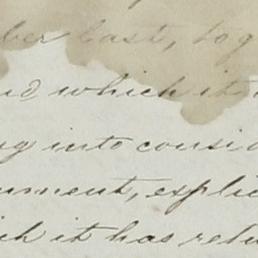 ber last, tog
nd which it
ng into consid
ument, explic
ich it has retu